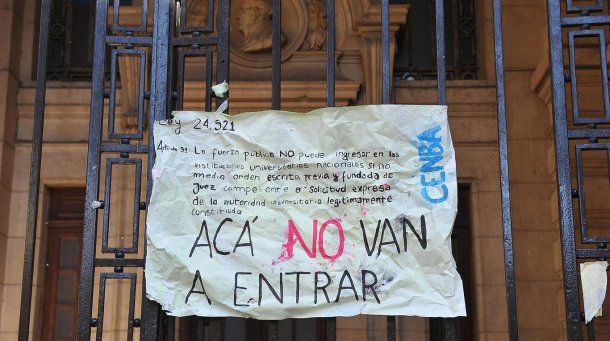 Ley 24.521
Artículo 31. La fuerza pública NO puede ingresar en las
instituciones universitarias nacionales si no
media orden escrita previa y fundada de
juez competente o solicitud expresa
de la autoridad universitaria legítimamente
constituida
CENBA
ACÁ NO VAN
A ENTRAR